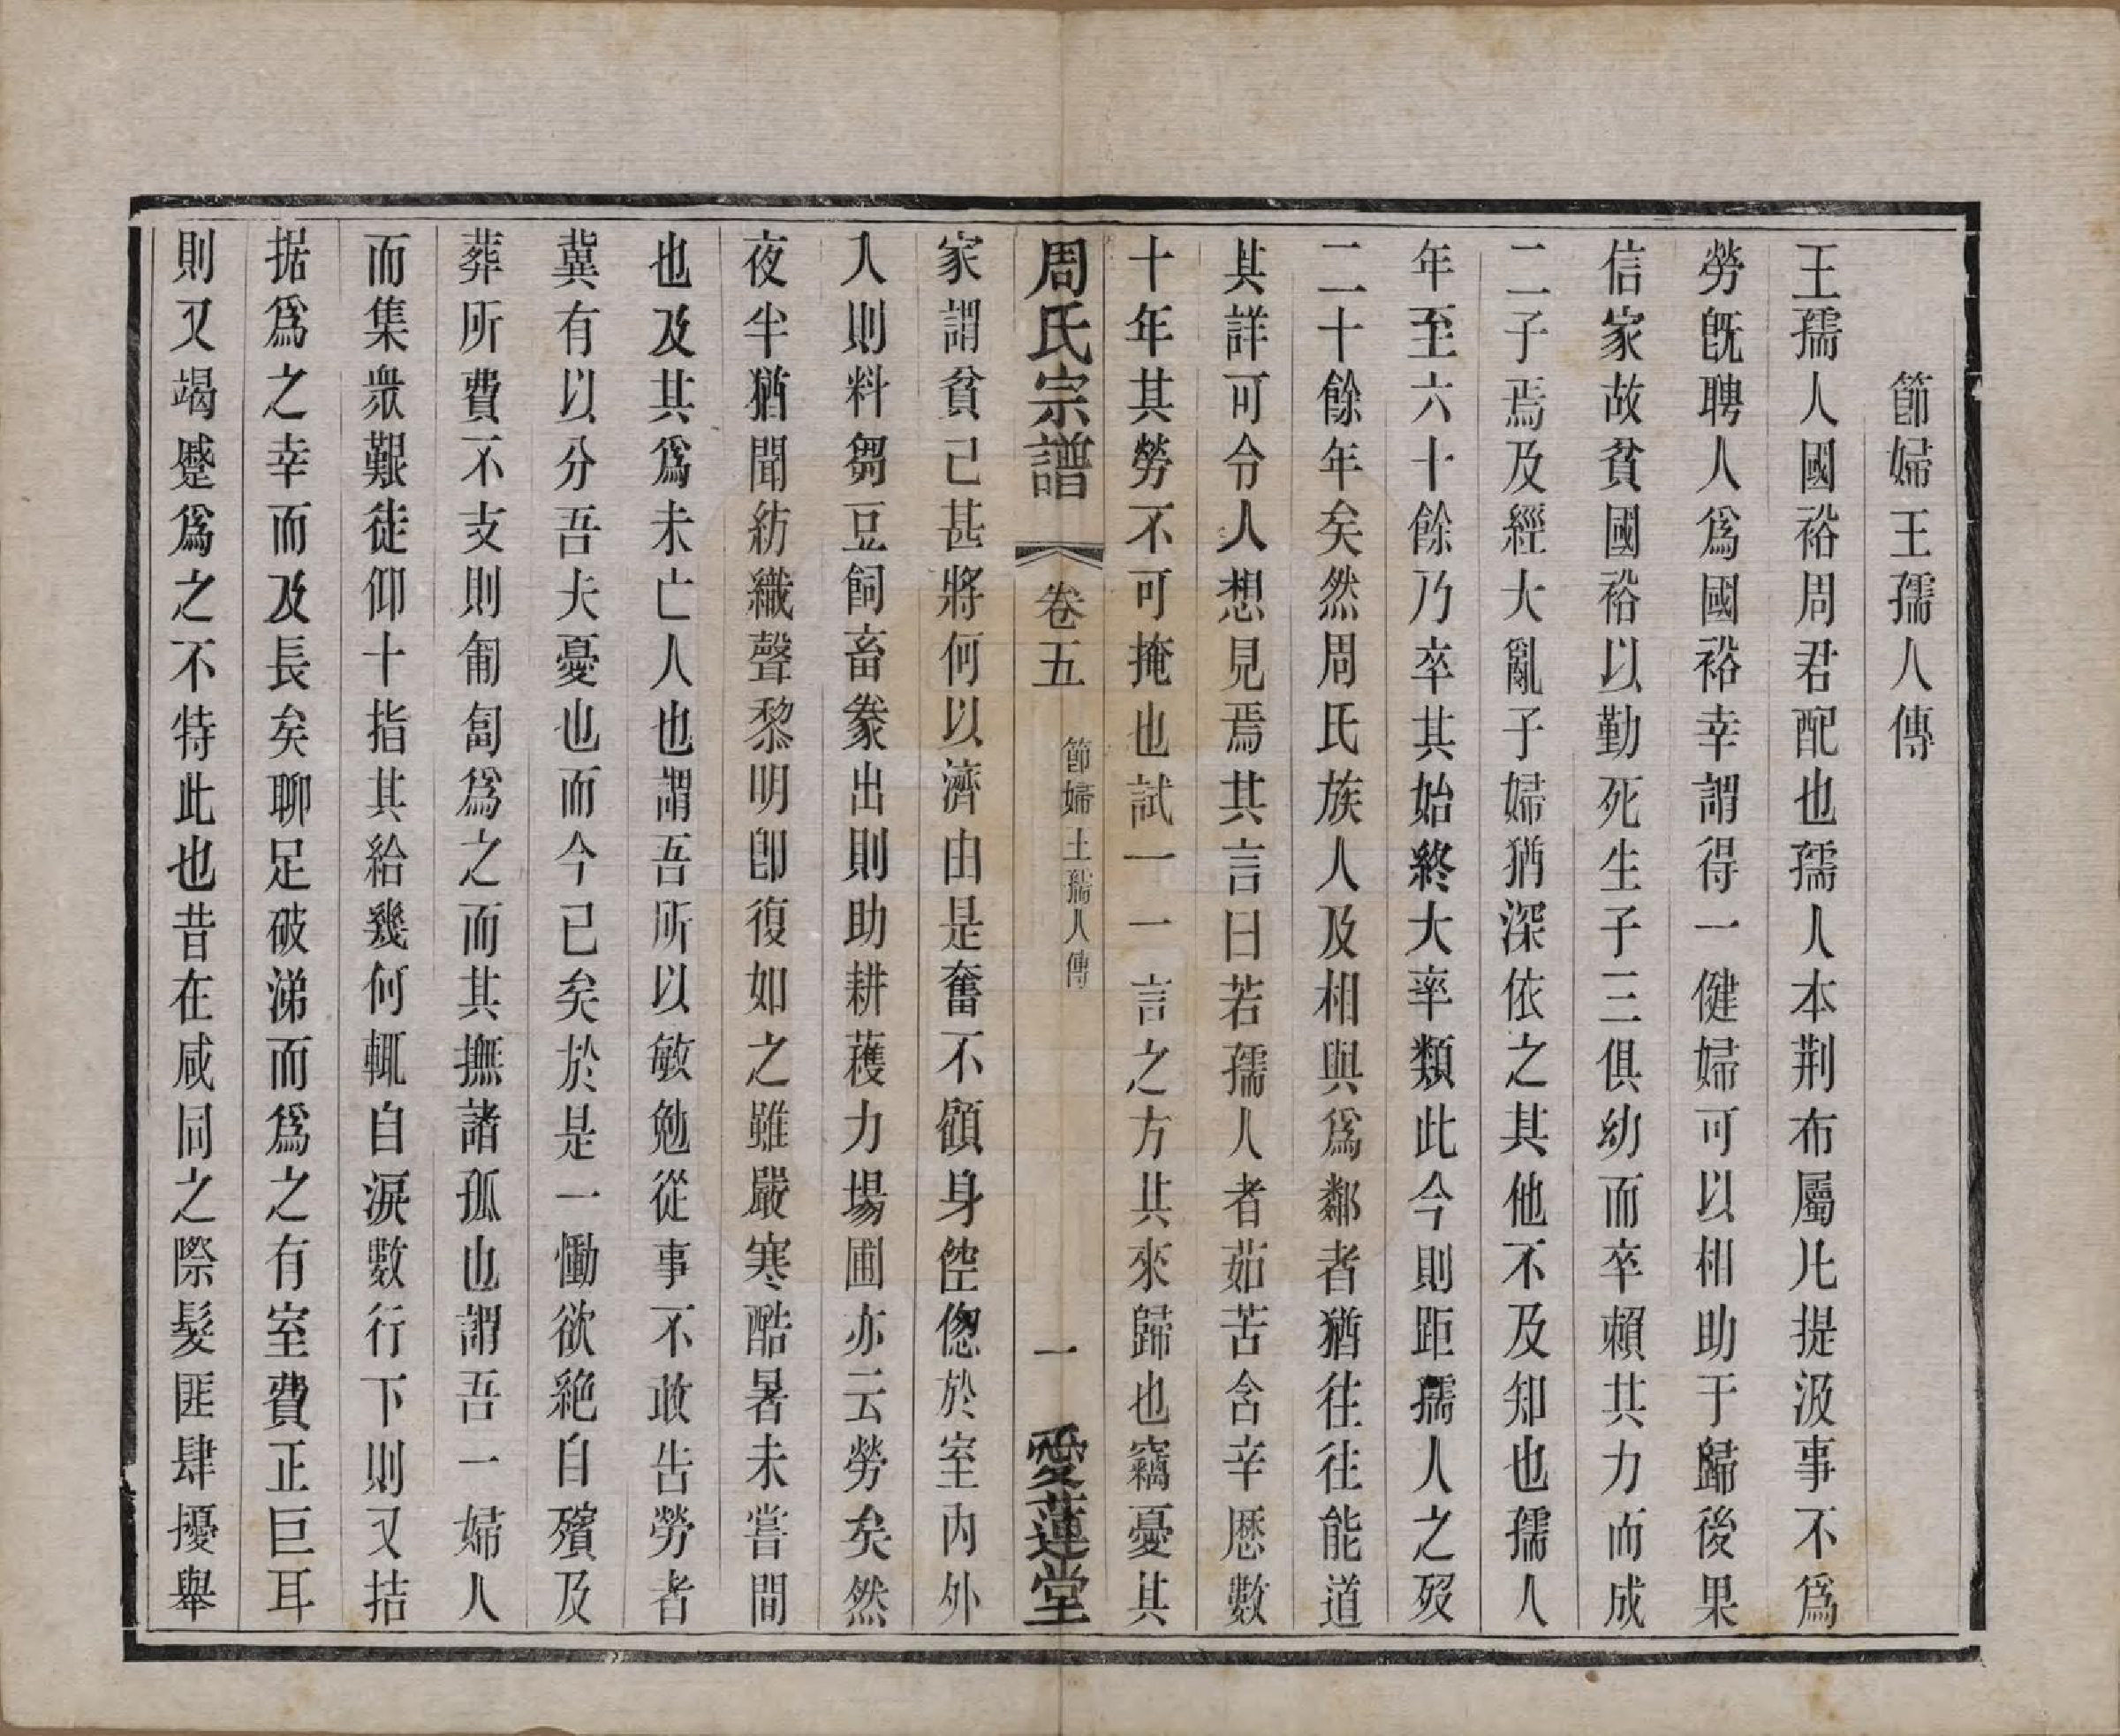 節婦王孺人傳
王孺人國裕周君配也孺人本荆布屬凡提汲事不爲
勞旣聘人爲國裕幸謂得一健婦可以相助于歸後果
信家故貧國裕以勤死生子三俱幼而卒賴其力而成
二子焉及經大亂子婦猶深依之其他不及知也孺人
年至六十餘乃卒其始終大率類此今則距孺人之歿
二十餘年矣然周氏族人及相與爲鄰者猶往往能道
其詳可令人想見焉其言曰若孺人者茹苦含辛歷數
十年其勞不可掩也試一一言之方其來歸也竊憂其
周氏宗譜
卷五
節婦王孺人傳
一
愛蓮堂
家謂貧已甚將何以濟由是奮不顧身倥傯於室內外
入則料芻豆飼畜豢出則助耕穫力場圃亦云勞矣然
夜半猶聞紡織聲黎明卽復如之雖嚴寒酷暑未嘗間
也及其爲未亡人也謂吾所以敏勉從事不敢告勞者
冀有以分吾夫憂也而今已矣於是一慟欲絕自殯及
葬所費不支則匍匐爲之而其撫諸孤也謂吾一婦人
而集衆艱徒仰十指其給幾何輒自淚數行下則又拮
据爲之幸而及長矣聊足破涕而爲之有室費正巨耳
則又竭蹷爲之不特此也昔在咸同之際髮匪肆擾舉